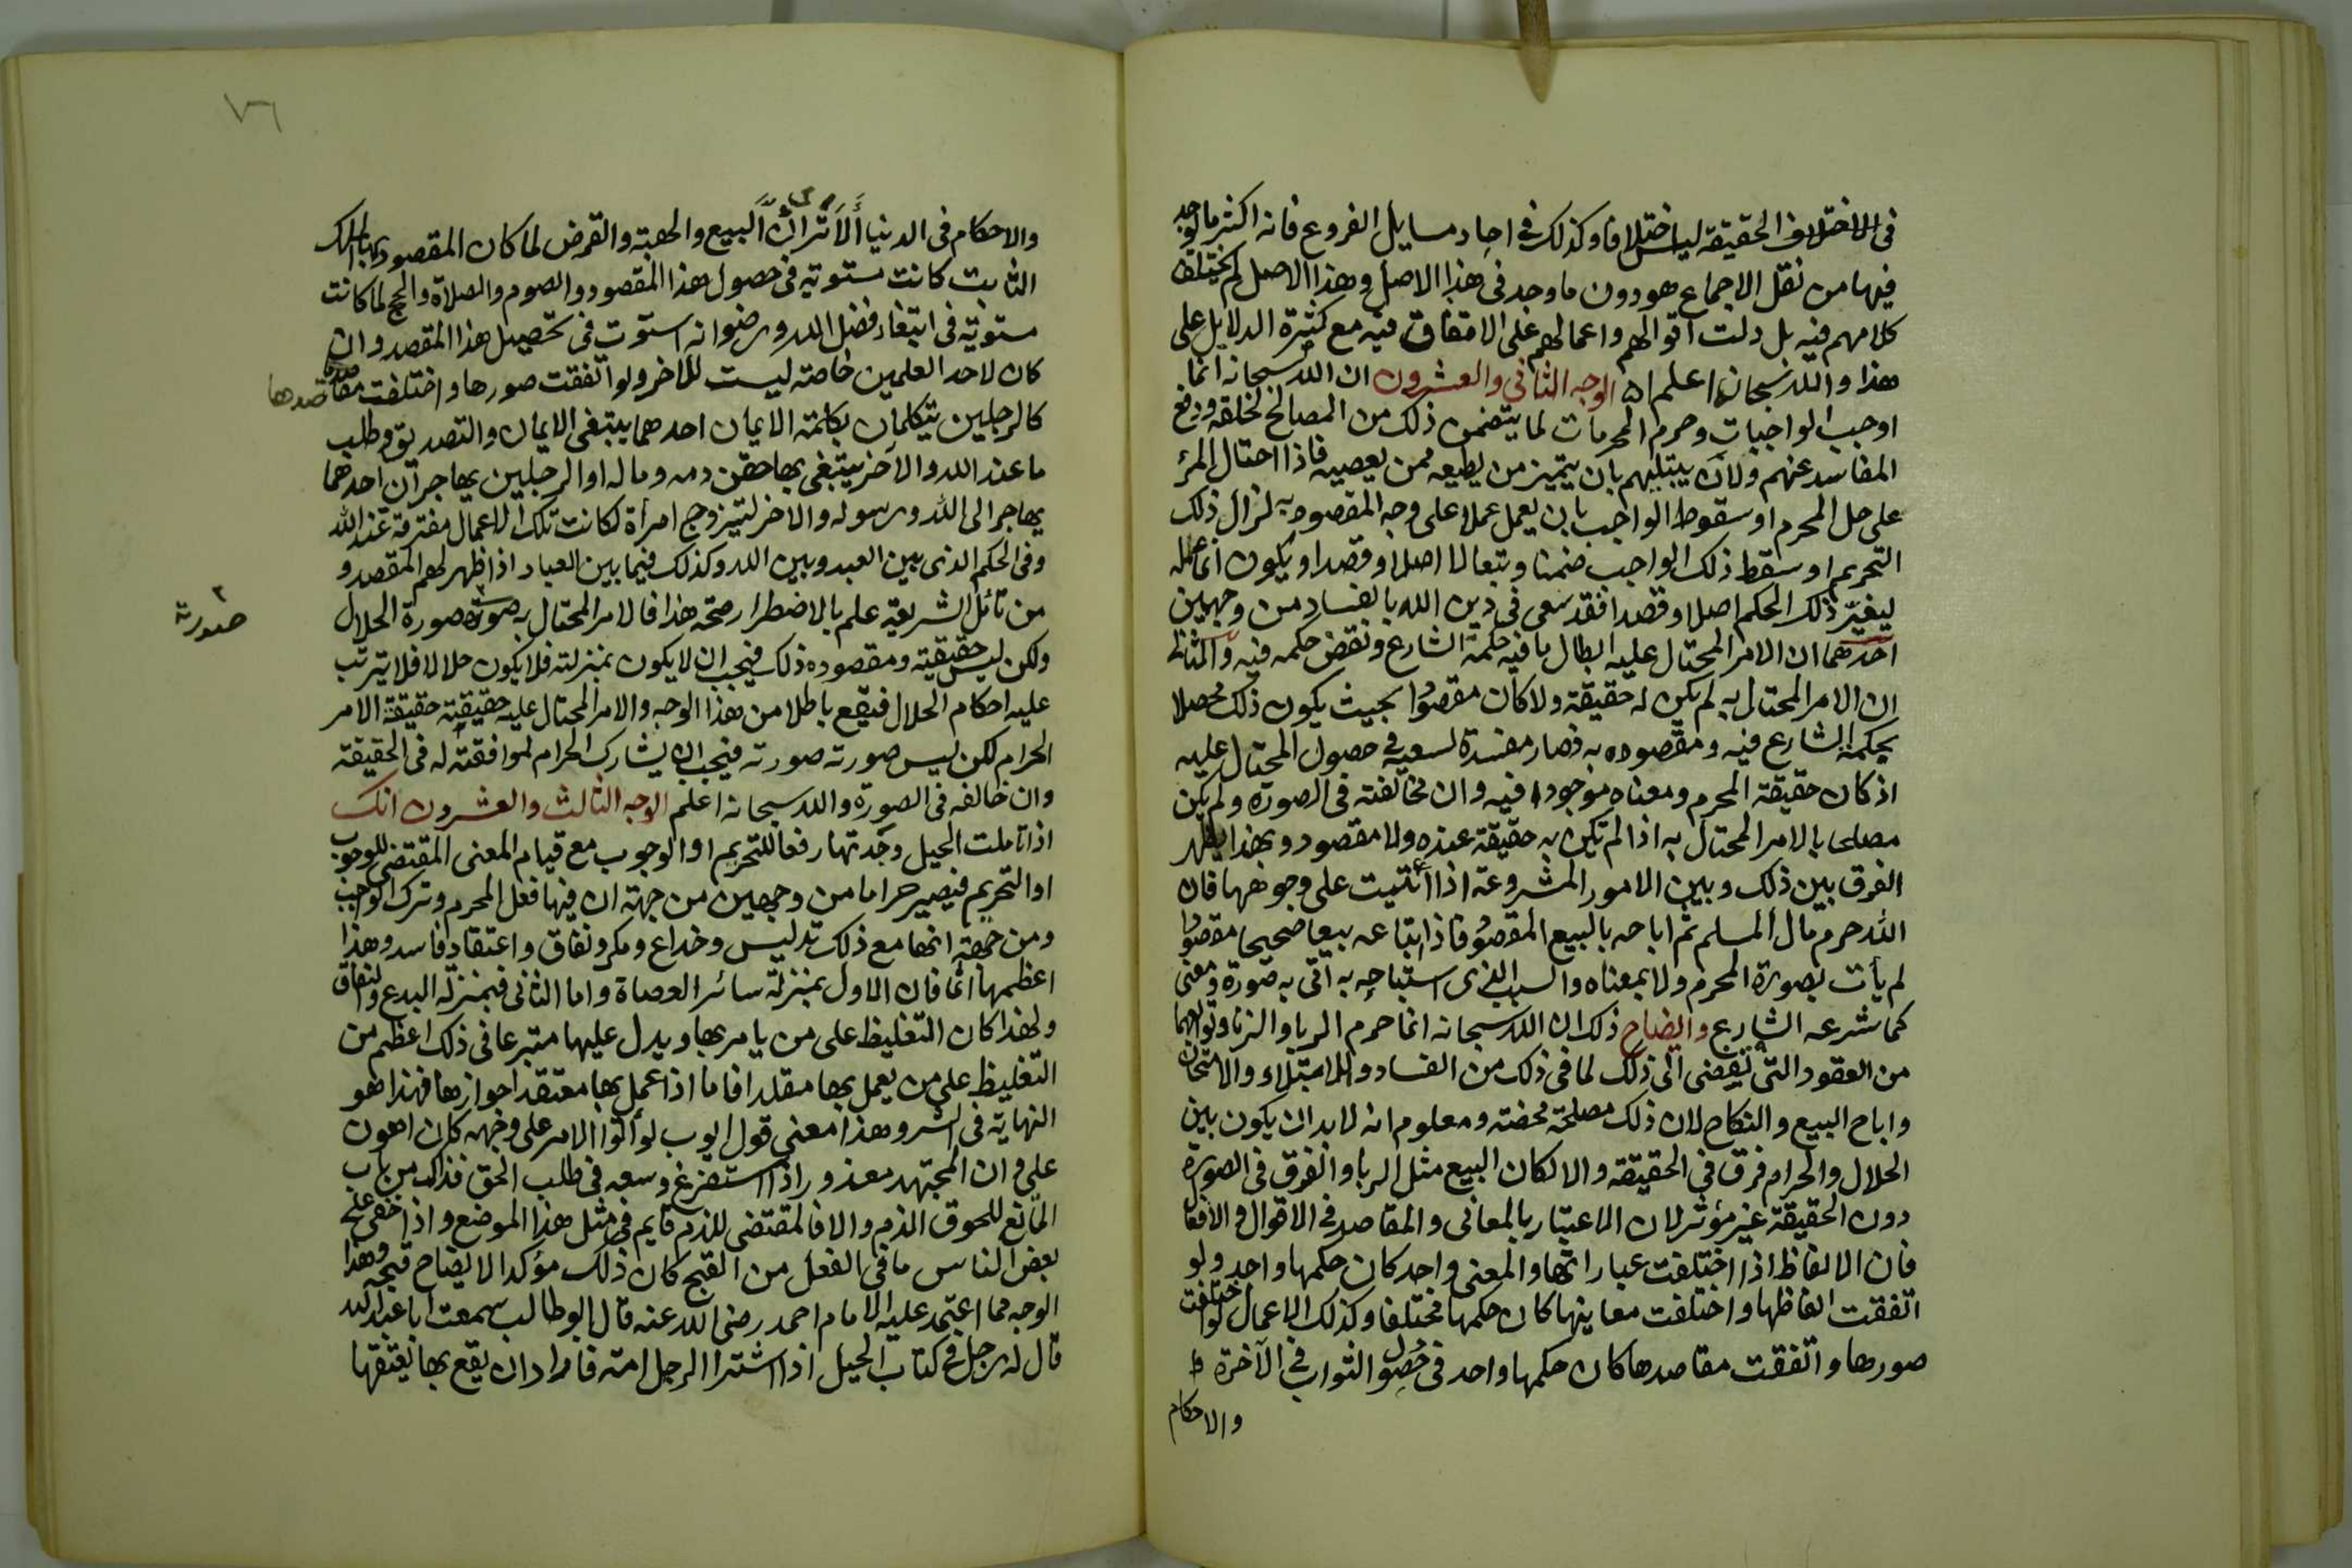 في الاختلاف الحقيقة ليس اختلافا وكذلك في احاد مسايل الفروع فانه اكثر ما يوجد
فيها من نقل الاجماع هو دون ما وجد في هذا الاصل وهذا الاصل لم يختلف
كلامهم فيه بل دلت اقوالهم واعمالهم على الاتفاق فيه مع كثرة الدلايل على
هذا والله سبحانه اعلم الوجه الثاني والعشرون ان الله سبحانه انما
اوجب الواجبات وحرم المحرمات لما يتضمن ذلك من المصالح لخلقه ودفع
المفاسد عنهم ولان يبتليهم بان يتميز من يطيعه ممن يعصيه فاذا احتال المرء
على حل المحرم او سقوط الواجب بان يعمل عملا على وجه المقصود به لزال ذلك
التحريم او سقط ذلك الواجب ضمنا وتبعا لا اصلا وقصدا ويكون انما عمله
ليغيّر ذلك الحكم اصلا وقصدا فقد سعى في دين الله بالفساد من وجهين
احدهما ان الامر المحتال عليه ابطال ما فيه حكمة الشارع ونقض حكمه فيه والثاني
ان الامر المحتال به لم يكن له حقيقة ولا كان مقصودا بحيث يكون ذلك محصلا
لحكمة الشارع فيه ومقصوده به فصار مفسدة لسعيه في حصول المحتال عليه
اذ كان حقيقة المحرم ومعناه موجودا فيه وان خالفته في الصورة ولم يكن
مصلحا بالامر المحتال به اذا لم تكن به حقيقة عنده ولا مقصود وبهذا يظهر
الفرق بين ذلك وبين الامور المشروعة اذا اتيت على وجوهها فان
الله حرم مال المسلم ثم اباحه بالبيع المقصود فاذا ابتاعه بيعا صحيحا مقصودا
لم يأت بصورة المحرم ولا بمعناه والسبب الذي استباحه به اتى به صورة ومعنى
كما شرعه الشارع وايضاح ذلك ان الله سبحانه انما حرم الربا والزنا وتوابعهما
من العقود التي تفضي الى ذلك لما في ذلك من الفساد والابتلاء والامتحان
واباح البيع والنكاح لان ذلك مصلحة محضة ومعلوم انه لابد ان يكون بين
الحلال والحرام فرق في الحقيقة والا لكان البيع مثل الربا والفرق في الصورة
دون الحقيقة غير مؤثر لان الاعتبار بالمعاني والمقاصد في الاقوال والافعال
فان الالفاظ اذا اختلفت عباراتها والمعنى واحد كان حكمها واحد ولو
اتفقت الفاظها واختلفت معاينها كان حكمها مختلفا وكذلك الاعمال لو اختلفت
صورها واتفقت مقاصدها كان حكمها واحد في حصول الثواب في الآخرة
والاحكام
٧٦
والاحكام في الدنيا ألا ترى أنّ البيع والهبة والقرض لما كان المقصود بها الملك
الثابت كانت مستوية في حصول هذا المقصود والصوم والصلاة والحج لما كانت
مستوية في ابتغاء فضل الله ورضوانه استوت في تحصيل هذا المقصد وان
كان لاحد العلمين خاصة ليست للآخر ولو اتفقت صورها واختلفت مقاصدها
كالرجلين يتكلمان بكلمة الايمان احدهما يبتغي الايمان والتصديق وطلب
ما عند الله والآخر يبتغي بها حقن دمه وماله او الرجلين يهاجران احدهما
يهاجر الى الله ورسوله والاخر ليتزوج امرأة لكانت تلك الاعمال مفترقة عند الله
وفي الحكم الذي بين العبد وبين الله وكذلك فيما بين العباد اذا ظهر لهم المقصد و
من تأمل الشريعة علم بالاضطرار صحة هذا فالامر المحتال به صورته صورة الحلال
صورته
ولكن ليس حقيقته ومقصوده ذلك فيجب ان لا يكون بمنزلته فلا يكون حلالا فلا يترتب
عليه احكام الحلال فيقع باطلا من هذا الوجه والامر المحتال عليه حقيقته حقيقة الامر
الحرام لكن ليس صورته صورته فيجب ان يشارك الحرام لموافقته له في الحقيقة
وان خالفه في الصورة والله سبحانه اعلم الوجه الثالث والعشرون انك
اذا تاملت الحيل وجدتها رفعا للتحريم او الوجوب مع قيام المعنى المقتضي للوجوب
او التحريم فيصير حراما من وجهين من جهة ان فيها فعل المحرم وترك الواجب
ومن جهة انها مع ذلك تدليس وخداع ومكر ونفاق واعتقاد فاسد وهذا
اعظمها اثما فان الاول بمنزلة سائر العصاة واما الثاني فبمنزلة البدع والنفاق
ولهذا كان التغليظ على من يامر بها ويدل عليها متبرعا في ذلك اعظم من
التغليظ على من يعمل بها مقلدا فاما اذا عمل بها معتقدا جوازها فهذا هو
النهاية في الشر وهذا معنى قول ايوب لو أتوا الامر على وجهه كان اهون
علي وان المجتهد معذور اذا استفرغ وسعه في طلب الحق فذلك من باب
المانع للحوق الذم والا فالمقتضي للذم قايم في مثل هذا الموضع واذا خفي على
بعض الناس ما في الفعل من القبح كان ذلك مؤكدا لايضاح قبحه وهذا
الوجه مما اعتمد عليه الامام احمد رضي الله عنه قال ابو طالب سمعت ابا عبد الله
قال له رجل في كتاب الحيل اذا اشترا الرجل امة فاراد ان يقع بها يعتقها